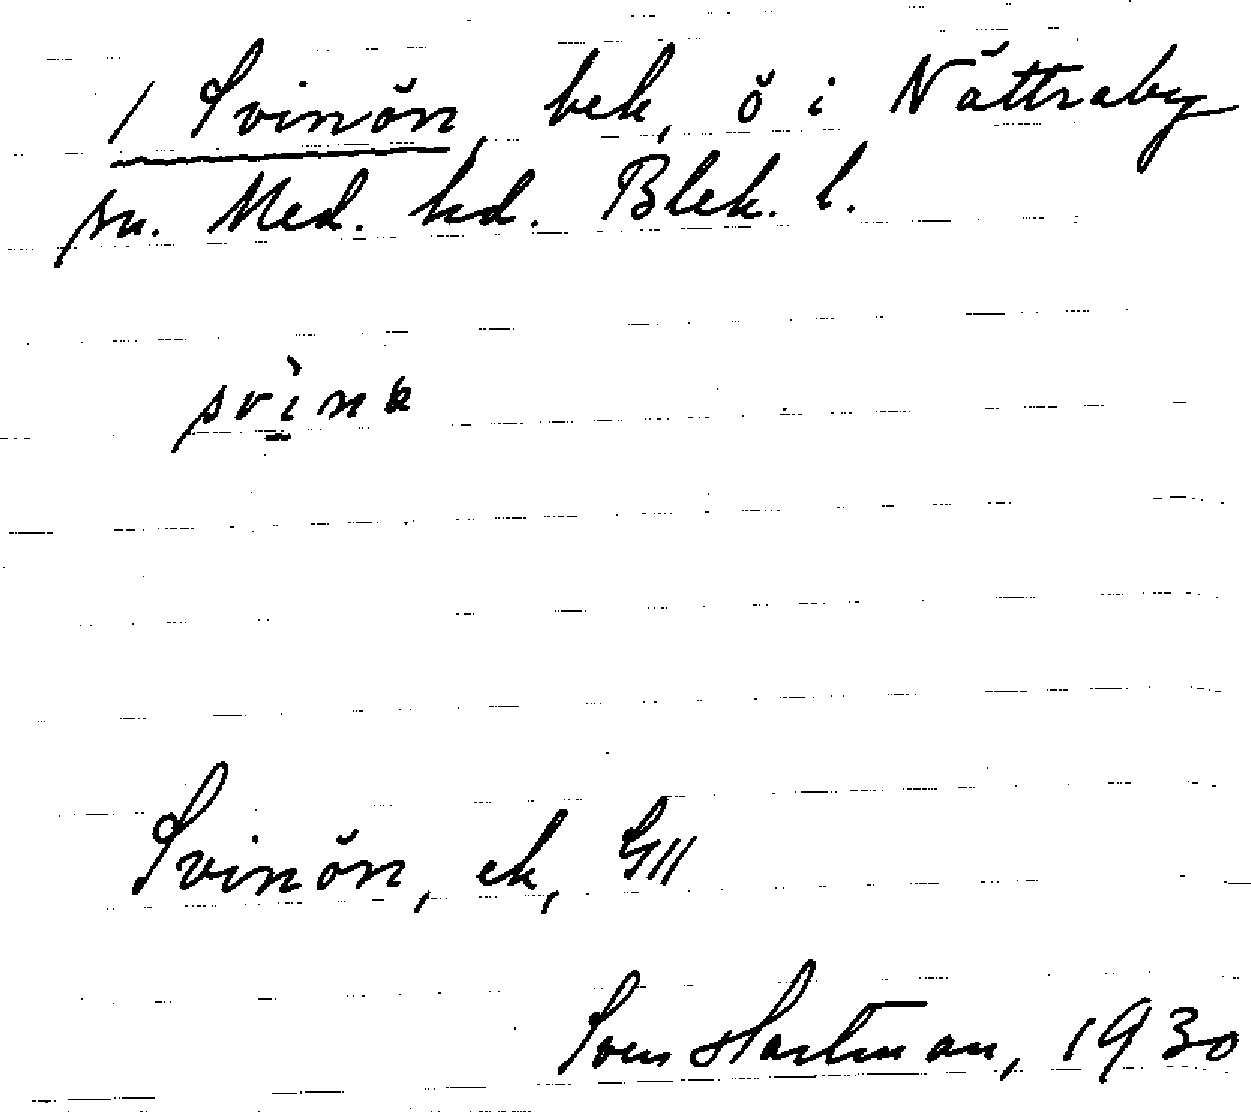 1 Svinön, bek, ö i Nättraby
sn. Med. hd. Blek. l.
svìna
Svinön, ek, GII
Sven Hartman, 1930